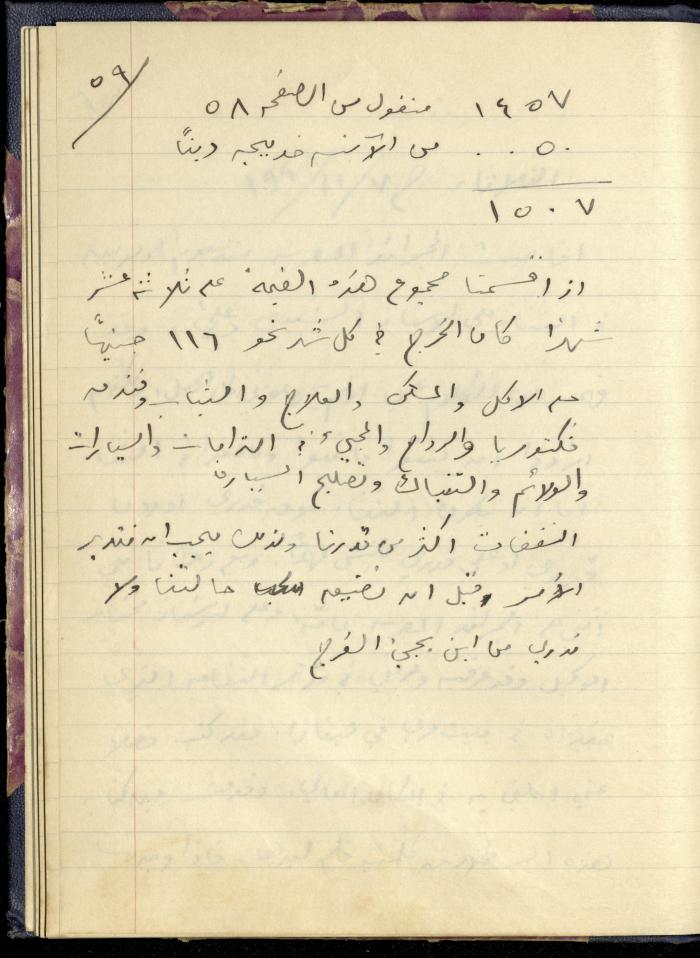 ٥٩/
١٤٥٧ منقول من الصفحه ٥٨
٠٠٥٠ من الآنسه خديجه دينًا
١٥٠٧
اذا قسمنا مجموع هذه القيمة على ثلاثة عشر
شهرا كان الخرج في كل شهر نحو ١١٦ جنيهًا
على الاكل والمسكن والعلاج والثياب وفندق
فكتوريا والرواح والمجيء في الترامات والسيارات
والولائم والتنباك وتصليح السيارة
النفقات اكثر من قدرنا ولذلك يجب ان نتدبر
الأمر قبل ان تضيق حالتنا ولا
ندري من اين يجيء الفرج